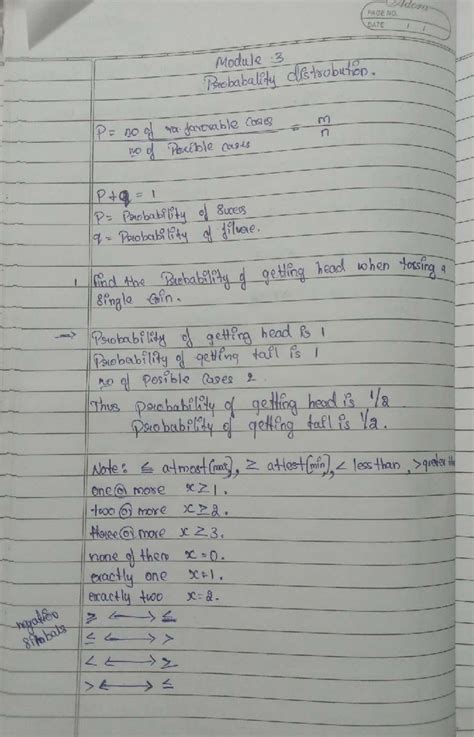 Adora
PAGE NO.
DATE / /
Module - 3
Probabality distrobution.
P = no of favorable cases / no of Posible cases = m/n
P+q = 1
P = Probability of Sucess
q = Probability of filure.
1 find the Probability of getting head when tossing a
single coin.
→ Probability of getting head is 1
Probability of getting tail is 1
no of posible cases 2.
Thus probability of getting head is 1/2
Probability of getting tail is 1/2.
Note: ≤ atmost(max), ≥ attest(min), < less than, > greater tha
one or more x ≥ 1.
two or more x ≥ 2.
three or more x ≥ 3.
none of them x=0.
exactly one x=1.
exactly two x=2.
negation
simbals
≥ ⟷ ≤
≤ ⟷ >
< ⟷ ≥
> ⟷ ≤